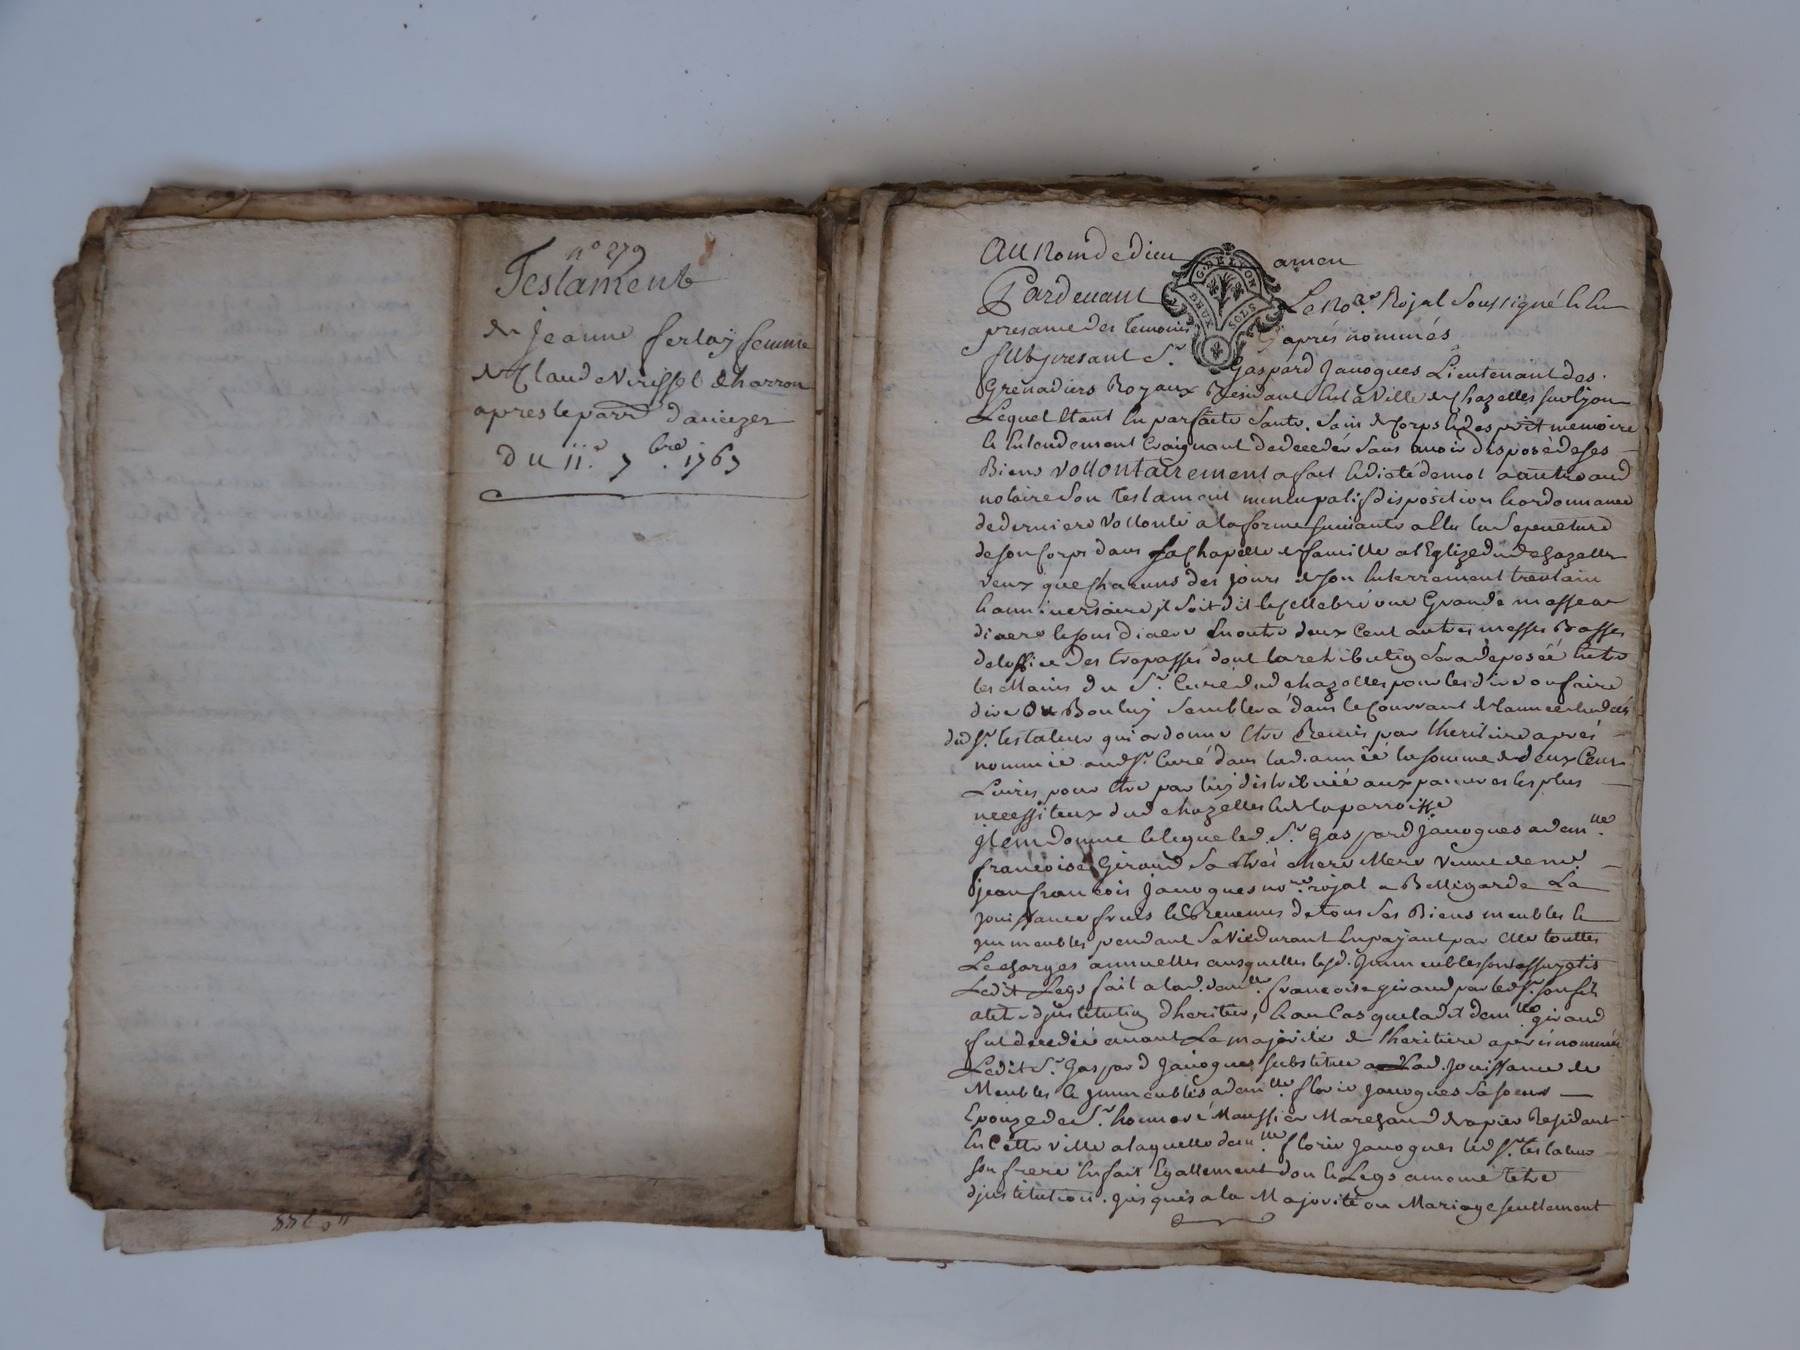 n° 279
Testament
de jeanne ferlay femme
de Claude Verissel charron
apres le parr d'aveizes
Du 11e 7bre 1767
n° 288
Au Nom de dieu amen
G. DE LYON
DEUX SOLS
Pardevant Le No.re Royal Soussigné & en
presance des Temoins cy après nommés
fut presant Sr Gaspard Janogues Lieutenant des
Grenadiers Royaux Residant en la Ville de Chazelles sur lyon
Lequel Etant En parfaite Santé, Sain de Corps & desprit memoire
& Entendement Craignant de deceder Sans avoir disposé de ses
Biens vollontairement a fait & dicté de mot a autre aud
notaire Son Testament nuncupatif disposition & ordonnance
de derniere Vollonté a la forme suivante a Elu la Sepeulture
de son Corps dans sa Chapelle de famille a l'Eglize dud chazelles
veux que Chacuns des jours de son Enterrement trentain
& anniversaire jl Soit dit & cellebré une Grande messe a
diacre & sous diacre En outre deux Cent autres messes Basses
de loffice des trepassés dont la retribution Sera deposéé Entre
les Mains du Sr Curé dud chazelles pour les dire ou faire
dire ou Bon luy Semblera dans le Courrant de l'année du decés
dud Sr testateur qui ordonne Etre Remis par l'heritiere aprés
nommée aud Sr Curé dans lad. année la somme de deux Cent
Livres pour Etre par luy distribuée aux pauvres les plus
necessiteux dud chazelles & de la parroisse
jtem donne & legue led. Sr Gaspard Janogues a demlle
francoise Giraud Sa trés chere Mere veuve de me
jean francois Janogues nore royal a Bellegarde La
jouissance fruits & Revenus de tous Ses Biens meubles &
jmmeubles pendant Sa Vie durant En payant par Elle touttes
Les charges annuelles ausquelles lesd. jmmeubles sont assujetis
Ledit Legs fait a lad. demlle francoise giraud par led Sr son fils
a titre djnstitution d'heritiere, & au Cas que ladit demlle giraud
fut decedéé avant La majorité de l'heritiere aprés nommée
Ledit Sr Gaspard Janogues substitue a Lad. jouissance de
Meubles & jmmeubles a demlle florie Janogues Sa soeur
Epouze de Sr honnoré Maussier Marchand drapier Residant
En Cette ville a laquelle demlle florie Janogues led Sr testateur
son frere En fait Egallement don & Legs a meme titre
djnstitution jusques a la Majorité ou Mariage seullement